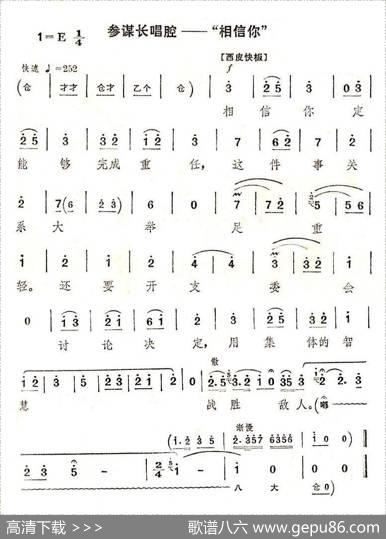 参谋长唱腔——“相信你”
1=E 1/4
【西皮快板】
快速 ♩=252
(仓 才才 仓才 乙个 仓) 3 2 5 0 3
相 信 你 定
2 5 3 3 2 1 2 3 2 2 3
能 够 完成 重 任, 这 件 事 关
2 7 (6 2 3) 7 7 2 5 5 6
系 大 举 足 重
1 2 1 2 4 4 3 3 2 1
轻。 还 要 开 支 委 会
0 1 3 2 1 6 1 2 2 5 3 2 3 5
讨 论 决 定, 用 集 体 的 智
散
慧 战 胜 敌 人。(嘟
渐慢
2 3 5 - 2/4 1 - 1 0 0 0
八 大 仓 0)
高清下载 >>> 歌谱八六 www.gepu86.com